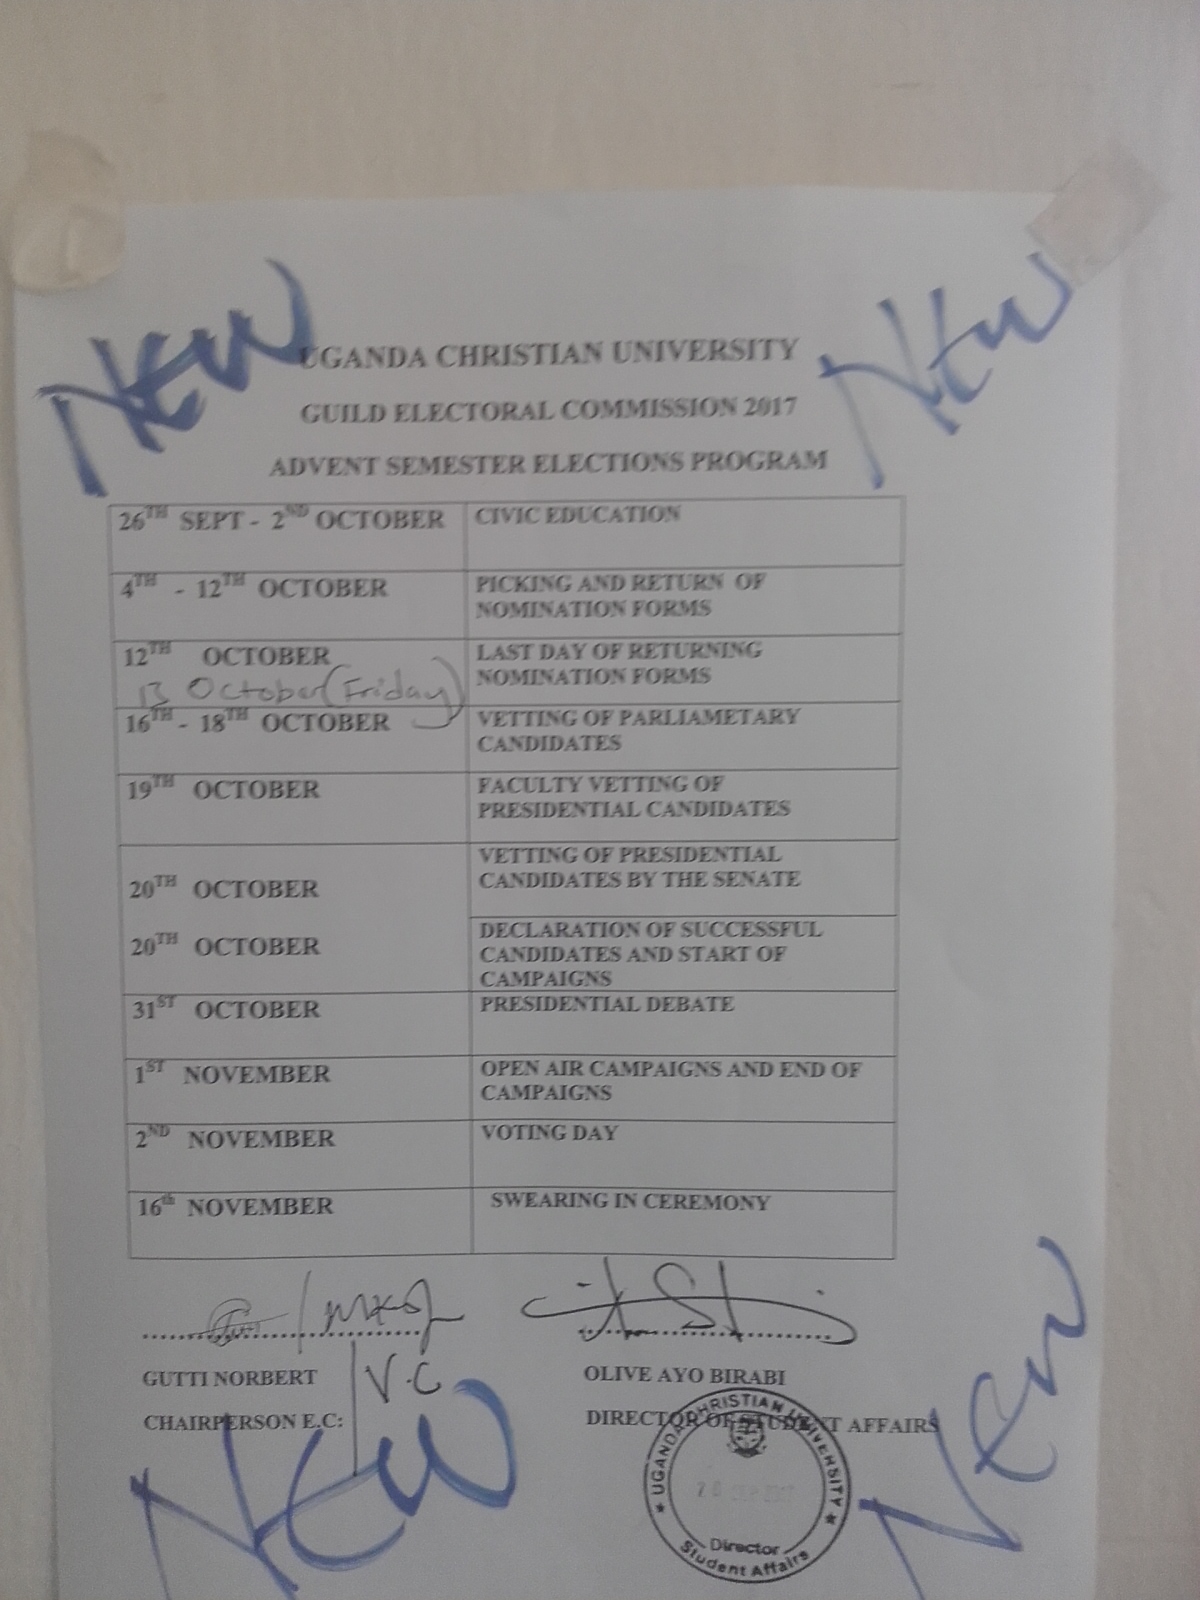 NEW
NEW
UGANDA CHRISTIAN UNIVERSITY
GUILD ELECTORAL COMMISSION 2017
ADVENT SEMESTER ELECTIONS PROGRAM
26TH SEPT - 2ND OCTOBER CIVIC EDUCATION
4TH - 12TH OCTOBER PICKING AND RETURN OF
NOMINATION FORMS
12TH OCTOBER LAST DAY OF RETURNING
NOMINATION FORMS
13 October (Friday)
16TH - 18TH OCTOBER VETTING OF PARLIAMETARY
CANDIDATES
19TH OCTOBER FACULTY VETTING OF
PRESIDENTIAL CANDIDATES
20TH OCTOBER VETTING OF PRESIDENTIAL
CANDIDATES BY THE SENATE
20TH OCTOBER DECLARATION OF SUCCESSFUL
CANDIDATES AND START OF
CAMPAIGNS
31ST OCTOBER PRESIDENTIAL DEBATE
1ST NOVEMBER OPEN AIR CAMPAIGNS AND END OF
CAMPAIGNS
2ND NOVEMBER VOTING DAY
16th NOVEMBER SWEARING IN CEREMONY
GUTTI NORBERT V.C OLIVE AYO BIRABI
CHAIRPERSON E.C: DIRECTOR OF STUDENT AFFAIRS
UGANDA CHRISTIAN UNIVERSITY
Director
Student Affairs
NEW
New